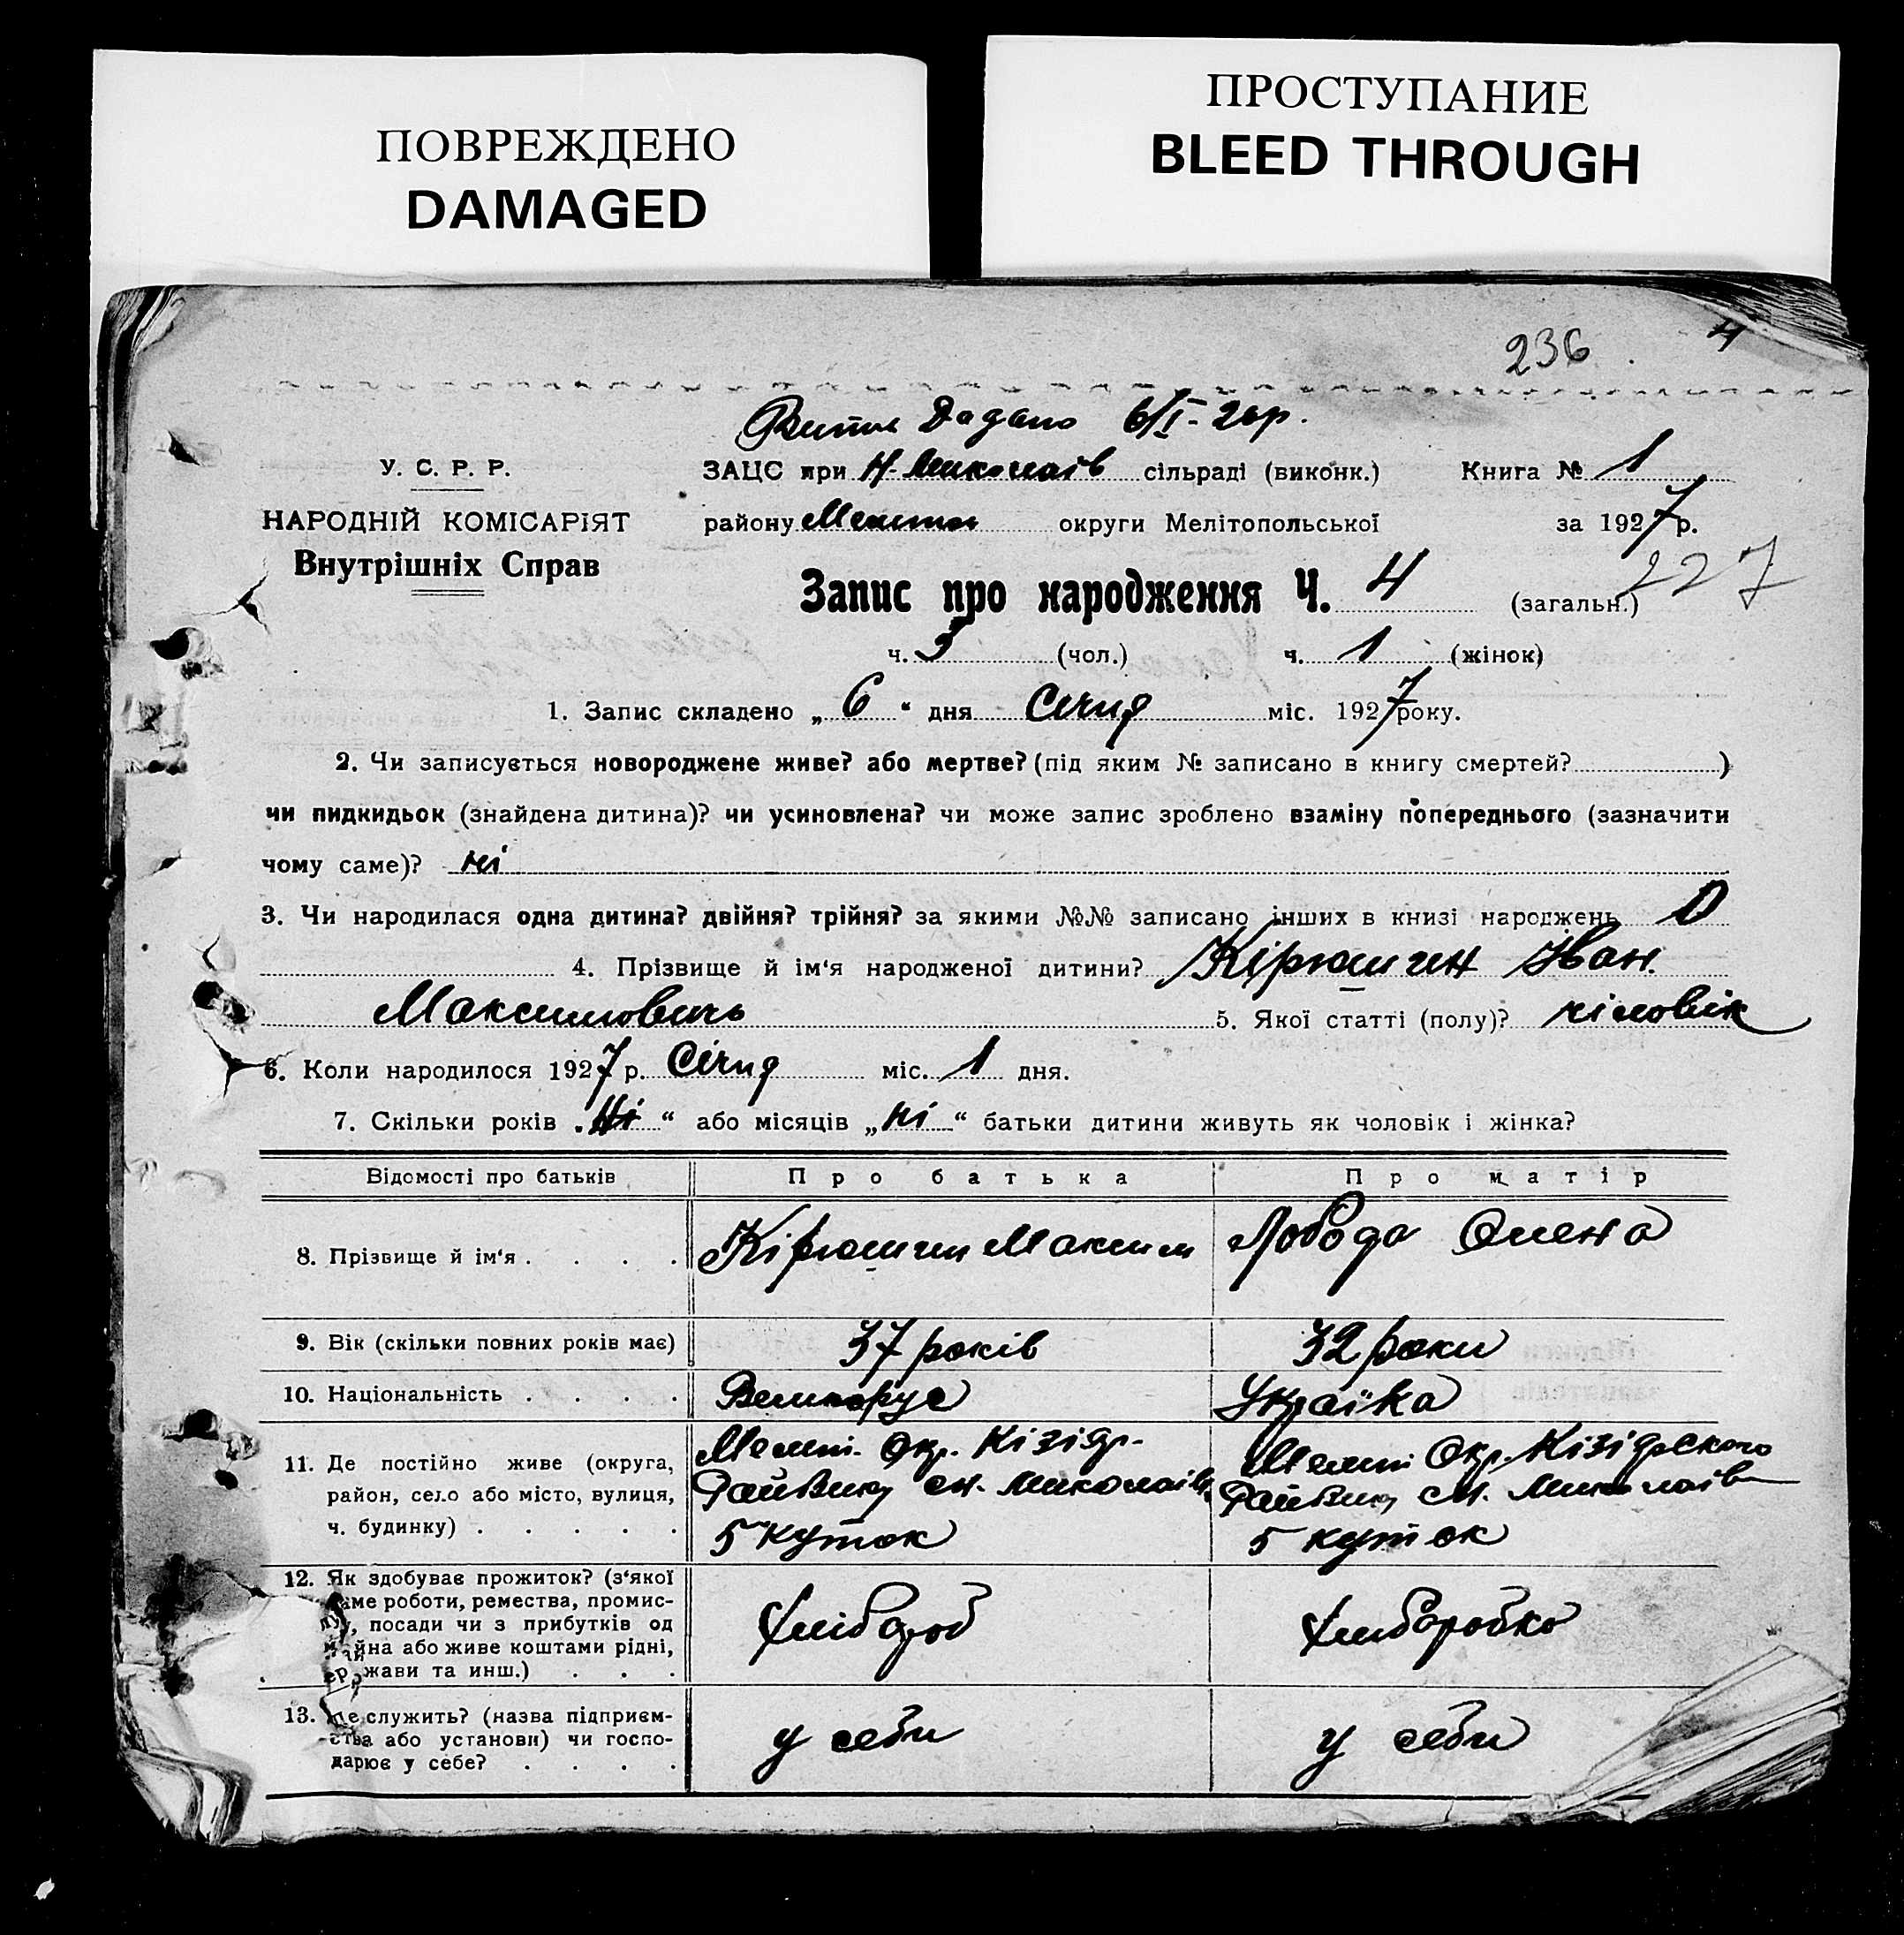 ПОВРЕЖДЕНО
DAMAGED
ПРОСТУПАНИЕ
BLEED THROUGH
236 4
6/I-
У. С. Р. Р.
НАРОДНІЙ КОМІСАРІЯТ
Внутрішніх Справ
ЗАЦС при Н-Миколаїв сільраді (виконк.) Книга № 1
району округи Мелітопольської за 1927 р.
227
Запис про народження Ч. 4 (загальн.)
ч. 3 (чол.) ч. 1 (жінок)
1. Запис складено „ 6 “ дня Січня міс. 1927 року.
2. Чи записується новороджене живе? або мертве? (під яким № записано в книгу смертей? )
чи пидкидьок (знайдена дитина)? чи усиновлена? чи може запис зроблено взаміну попереднього (зазначити
чому саме)? ні
3. Чи народилася одна дитина? двійня? трійня? за якими №№ записано інших в книзі народжень 0
4. Прізвище й ім‘я народженої дитини? Кірюшин Иван
Максимовичь 5. Якої статті (полу)? чіловік
6. Коли народилося 1927 р. Січня міс. 1 дня.
7. Скільки років „ Ні “ або місяців „ ні “ батьки дитини живуть як чоловік і жінка?
Відомості про батьків Про батька Про матір
8. Прізвище й ім‘я . . . . Кірюшин Максим Лобода Олена
9. Вік (скільки повних років має) 37 років 32 роки
10. Національність . . . . Великорус Украінка
11. Де постійно живе (округа, Меліт. Окр. Кізіяр- Меліт. Окр. Кізіярского
район, село або місто, вулиця, Райвику Миколаів Райвику Миколаів
ч. будинку) . . . . . 5 куток 5 куток
12. Як здобуває прожиток? (з‘якої
саме роботи, ремества, промис-
лу, посади чи з прибутків од хлібороб хлиборобко
майна або живе коштами рідні,
держави та инш.) . . .
13. Де служить? (назва підприєм-
ства або установи) чи госпо- у себи у себи
дарює у себе? . . . .